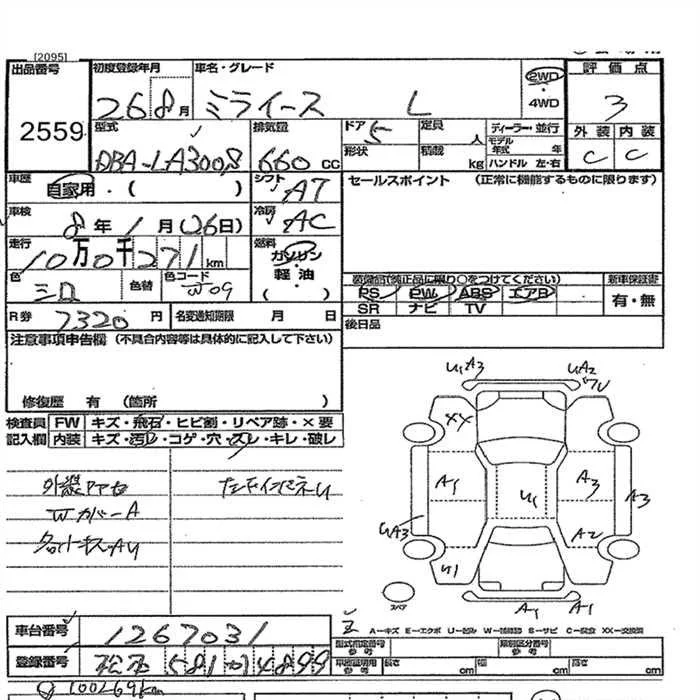 [2095]
出品番号 初度登録年月 車名・グレード 2WD ・ 4WD 評価点
2559 26 8月 ミライース L 3
型式 排気量 ドア 定員 ディーラー・並行 外装 内装
DBA-LA300S 660 CC 5 人 モデル年式 年 C C
形状 積載 kg ハンドル 左・右
車歴 自家用・( ) シフト AT セールスポイント (正常に機能するものに限ります)
車検 8年1月(26日) 冷房 AC
走行 10万0千271km 燃料 ガソリン・軽油 ( )
色 シロ 色替 色コード W09
装備品(純正品に限り○をつけてください) 新車保証書
PS PW ABS エアB 有・無
SR ナビ TV
R券 7320円 名変通知期限 月 日 後日品
注意事項申告欄 (不具合内容等は具体的に記入して下さい)
修復歴 有 (箇所 )
検査員 FW キズ・飛石・ヒビ割・リペア跡・×要
記入欄 内装 キズ・汚レ・コゲ・穴・スレ・キレ・破レ
U1A3 UA2
XX
A1 U1 A3 A3
UA3 A2
U1
A1 A1
スペア
WカバーA
A-キズ E-エクボ U-凹み W-補修跡 S-サビ C-腐食 XX-交換済
車台番号 1267031
登録番号 581 4899
型式指定番号 参考 類別区分番号 参考
車証明用 参考 長さ cm 幅 cm 高さ cm
100269km